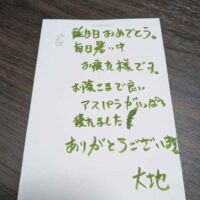 誕生日おめでとう。
毎日暑い中
お疲れ様です。
お陰さまで良い
アスパラがいっぱい
穫れました!
ありがとうございます
大地